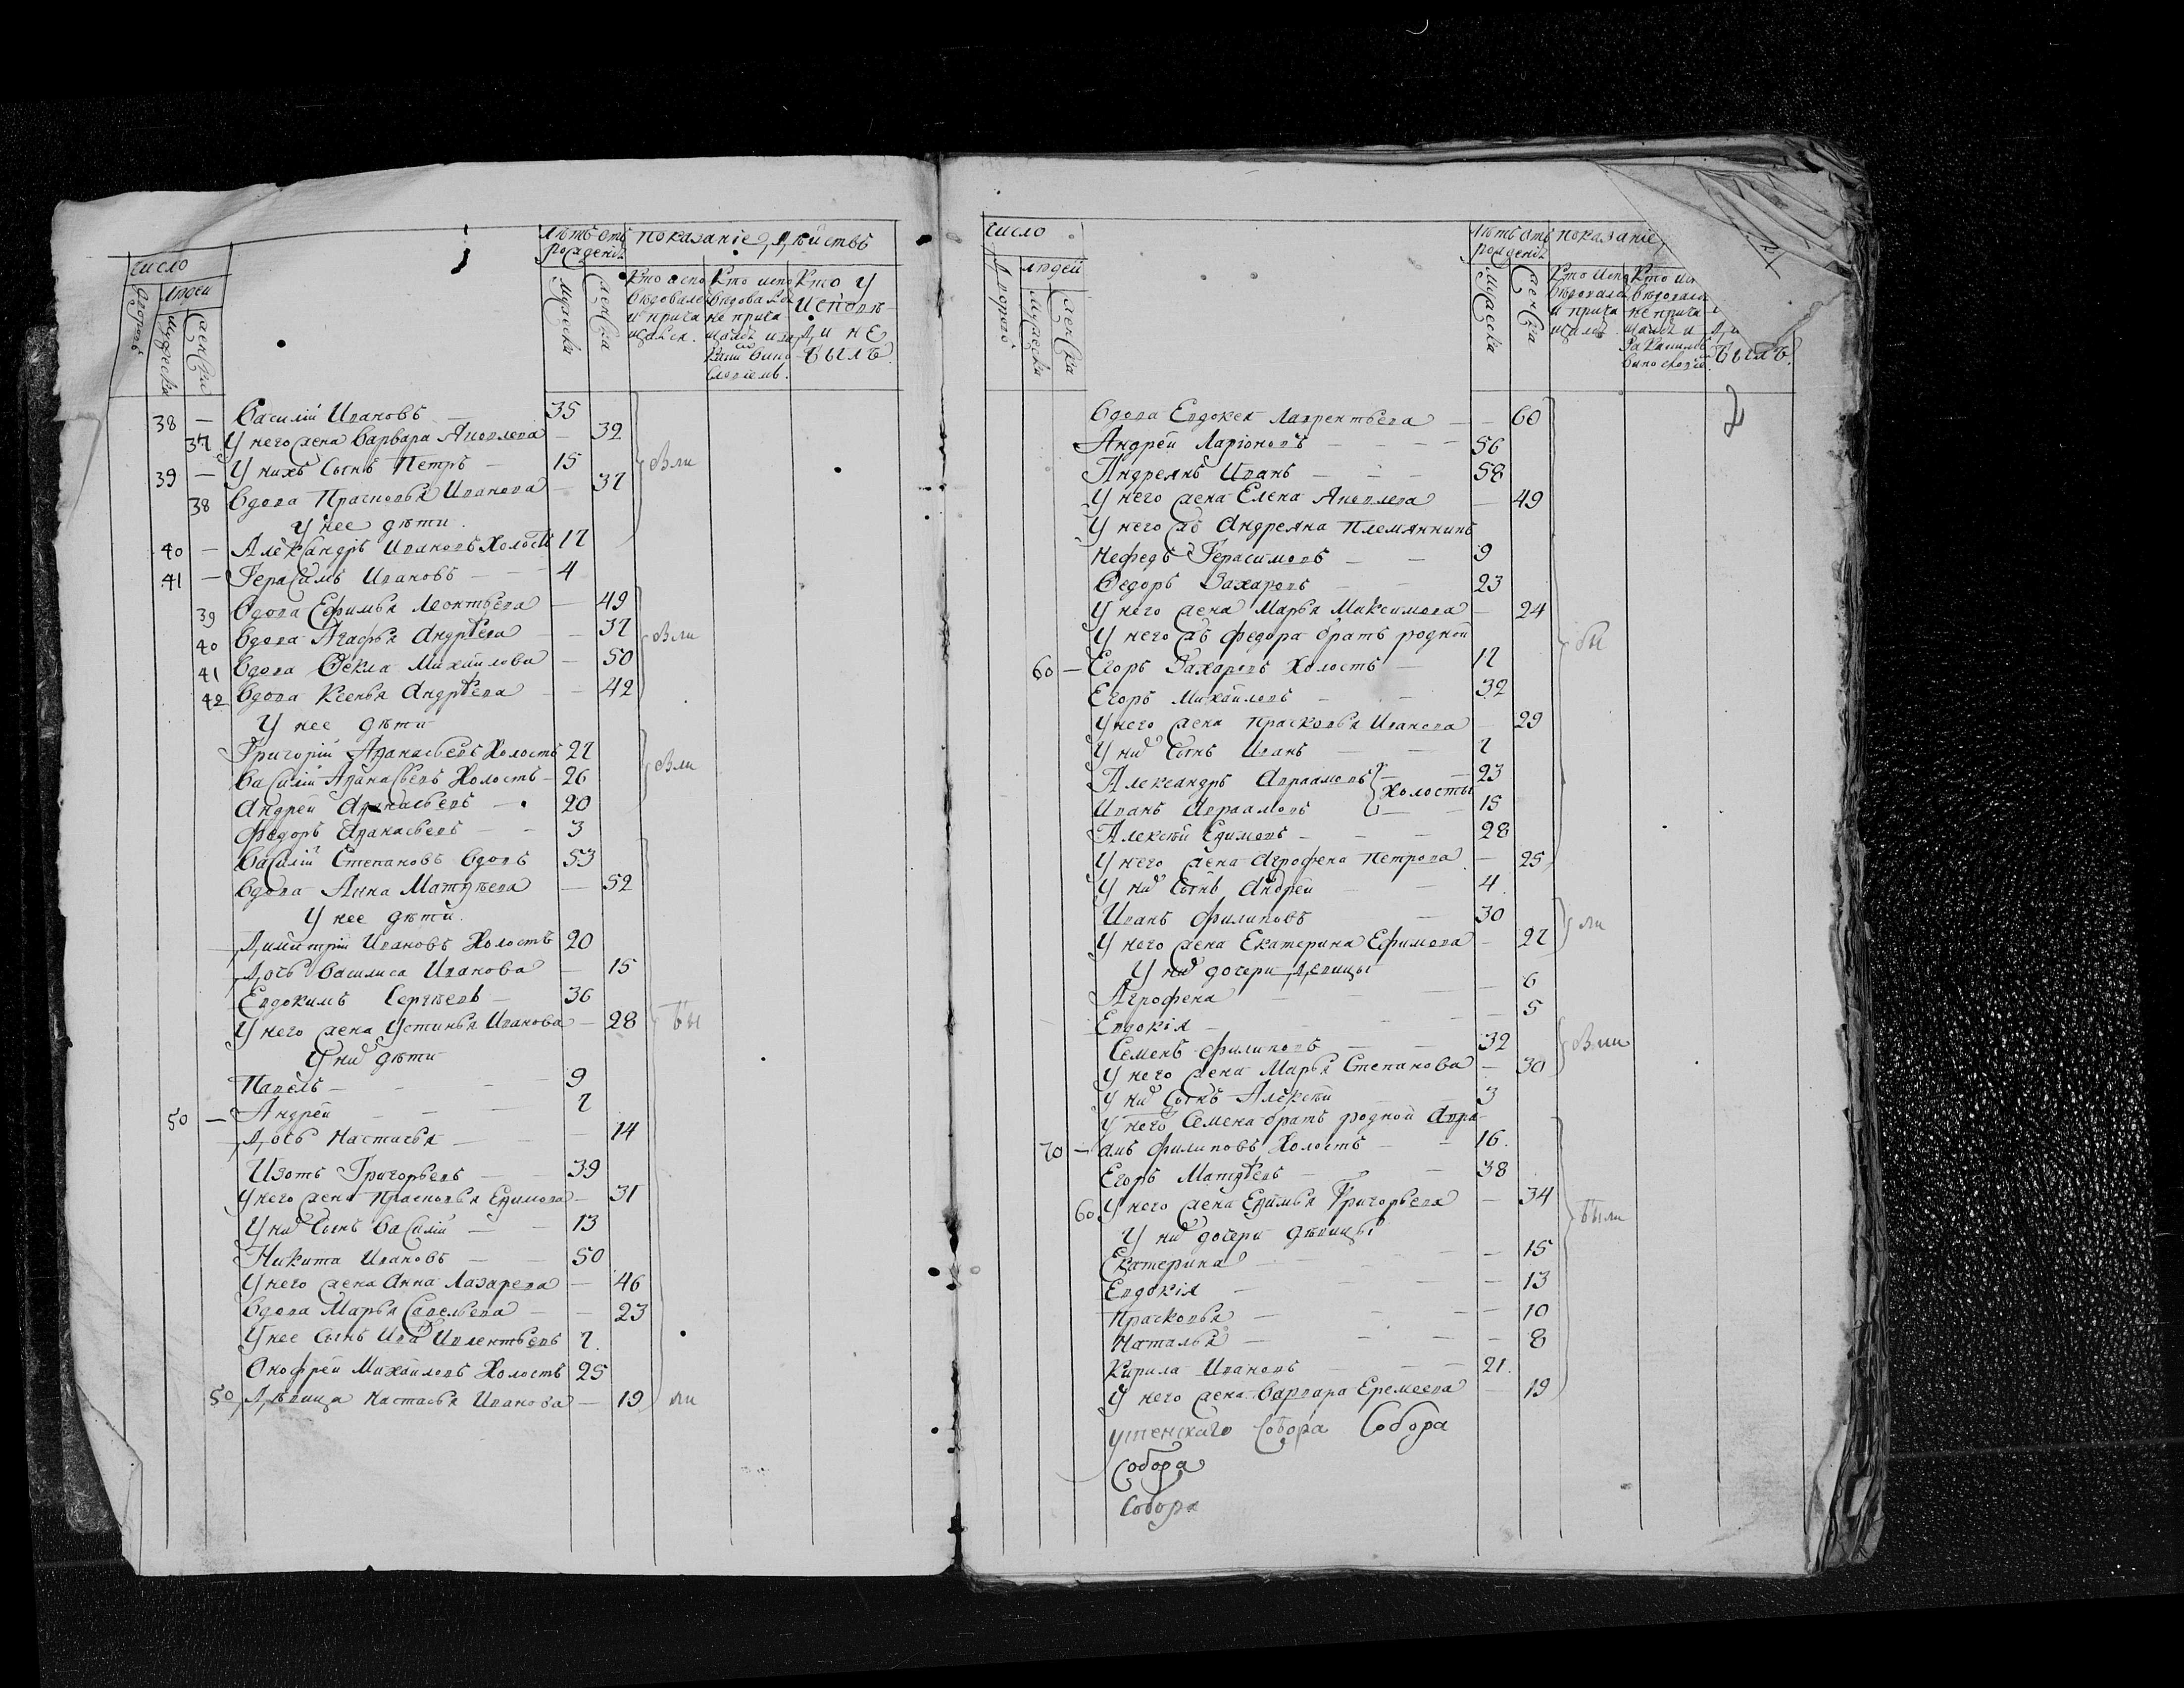 число
Дворовъ
людей
Мужеска
женска
Лѣтъ отъ рожденiя
Мужеска
женска
показанiе дѣйствъ
Кто испо
вѣдовалсѧ
и прича
щалсѧ.
Кто испо
вѣдовалсѧ
не прича
щалсѧ и за
каки вино
словiемъ.
Кто у
исповѣ
ди не
былъ
38 — Василiй Ивановъ — 35
37 У него жена Варвара Яковлева — 32
39 — У нихъ сынъ Петръ — 15
38 Вдова Прасковья Иванова — 37
У нее дѣти
40 — Александръ Ивановъ Холостъ 17
41 — Герасимъ Ивановъ — 4
39 Вдова Ефимья Леонтьева — 49
40 Вдова Агафья Андрѣева — 37
41 Вдова Ѳекла Михайлова — 50
42 Вдова Ксенья Андрѣева — 42
У нее дѣти
Григорiй Афанасьевъ Холостъ 27
Василiй Афанасьевъ Холостъ — 26
Андрей Афанасьевъ — 20
Федоръ Афанасьевъ — 3
Василiй Степановъ вдовъ 53
Вдова Анна Матвѣева — 52
У нее дѣти.
Димитрiй Ивановъ Холостъ 20
Дочь Василиса Иванова — 15
Евдокимъ Сергѣевъ — 36
У него жена Устинья Иванова — 28
У них дѣти
Павелъ — 9
50 — Андрей — 7
Дочь Настасья — 14
Изотъ Григорьевъ — 39
У него жена Прасковья Ефимова — 31
У них сынъ Василiй — 13
Никита Ивановъ — 50
У него жена Анна Лазарева — 46
Вдова Марья Савельева — 23
У нее сынъ Иван Иплентьевъ 7.
Онофрей Михайловъ Холостъ 25
50 Дѣвица Настасья Иванова — 19
число
Дворовъ
людей
Мужеска
женска
Лѣтъ отъ рожденiя
Мужеска
женска
показанiе
Кто испо
вѣдовалсѧ
и прича
щалсѧ.
былъ
Вдова Евдокея Лаврентьева — 60
Андрей Ларiоновъ — 56
Андреянъ Иванъ — 58
У него жена Елена Яковлева — 49
У него жъ Андреяна племянникъ
Нефедъ Герасимовъ — 9
Ѳедоръ Захаровъ — 23
У него жена Марья Максимова — 24
У него жъ Федора братъ родной
60 — Егоръ Захаровъ Холостъ — 17
Егоръ Михайловъ — 32
У него жена Прасковья Иванова — 29
У них сынъ Иванъ — 7
Александръ Авраамовъ — 23
Холосты
Иванъ Авраамовъ — 15
Алексѣй Ефимовъ — 28
У него жена Агрофена Петрова — 25
У них сынъ Андрей — 4.
Иванъ Филиповъ — 30
У него жена Екатерина Ефимова — 27
У них дочери Девицы
Агрофена — 6
Евдокiя — 5
Семенъ Филиповъ — 32
У него жена Марья Степанова — 30
У них сынъ Алексѣй — 3
У него Семена братъ родной Авра
70 — амъ Филиповъ Холостъ — 16.
Егоръ Матвѣевъ — 38
60 У него жена Ефимья Григорьева — 34
У них дочери дѣвицы
Екатерина — 15
Евдокiя — 13
Прасковья — 10
Наталья — 8
Кирила Ивановъ — 21.
У него жена Варвара Еремеева — 19
Собора Собора
Собора
Собора